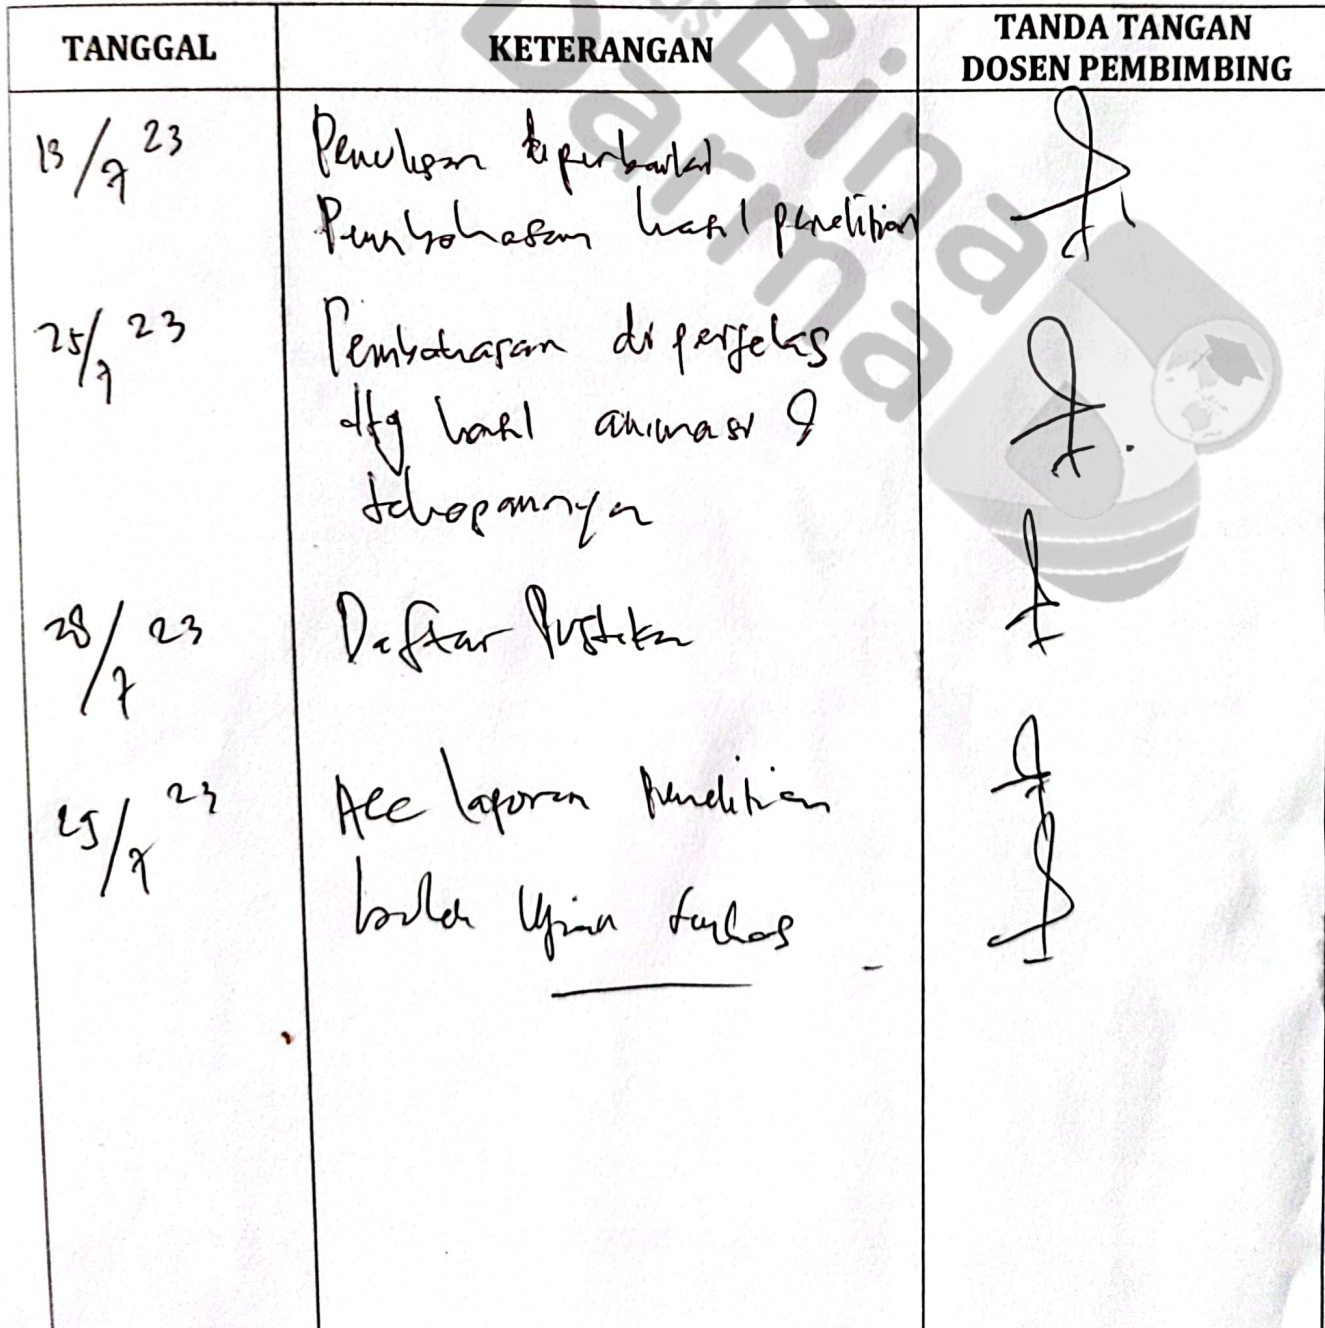 TANGGAL KETERANGAN TANDA TANGAN
DOSEN PEMBIMBING
Bina
Darma
13/7 23 Penulisan diperbaiki
Pembahasan hasil penelitian
25/7 23 Pembahasan diperjelas
dfg hasil animasi &
tahapannya
28/7 23 Daftar Pustaka
29/7 23 Acc laporan penelitian
boleh Ujian